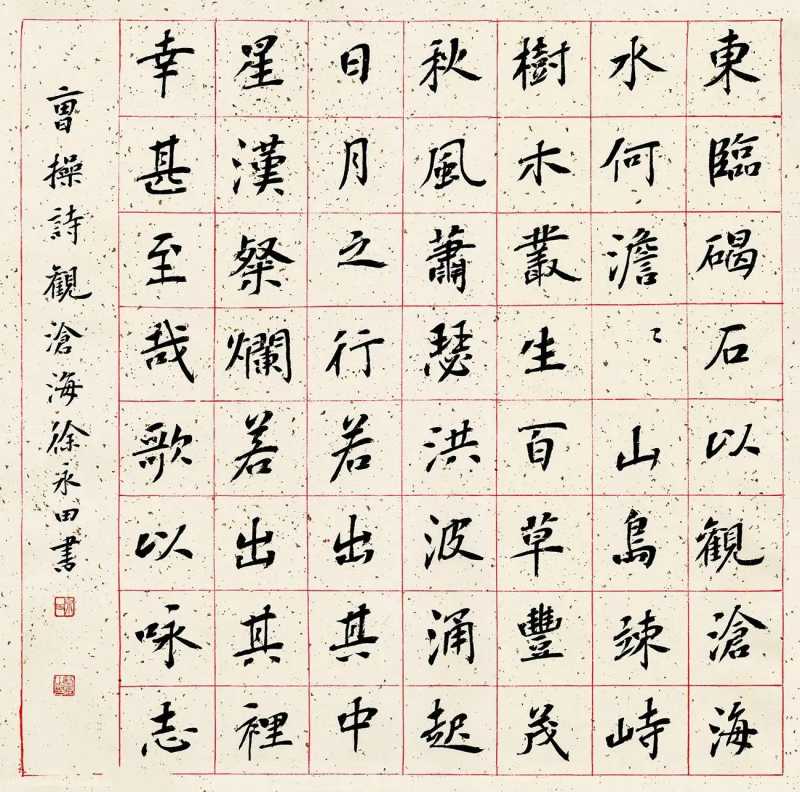 東臨碣石以観滄海
水何澹〻山島竦峙
樹木叢生百草豐茂
秋風蕭瑟洪波涌起
日月之行若出其中
星漢粲爛若出其裡
幸甚至哉歌以咏志
曹操詩観滄海徐永田书